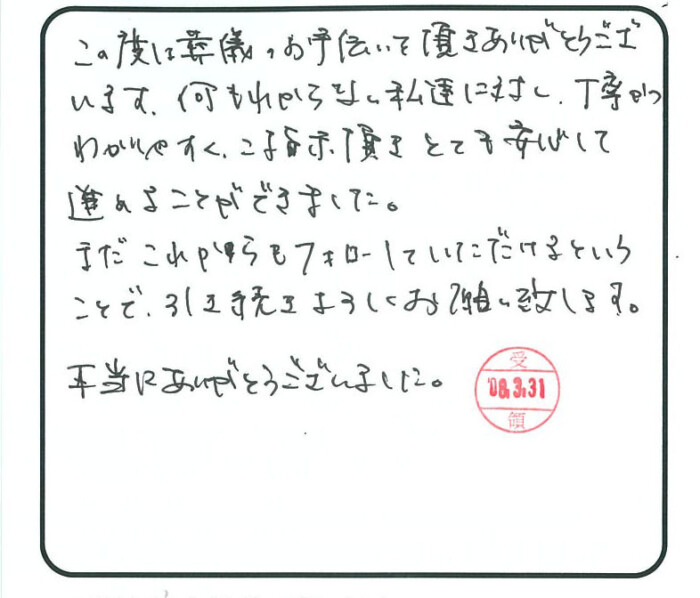 この度は葬儀のお手伝いを頂きありがとうござ
います。何もわからない私達にたいし、丁寧かつ
わかりやすく、ご指示頂きとても安心して
進めることができました。
まだこれからもフォローしていただけるという
ことで、引き続きよろしくお願い致します。
本当にありがとうございました。
受
'08.3.31
領